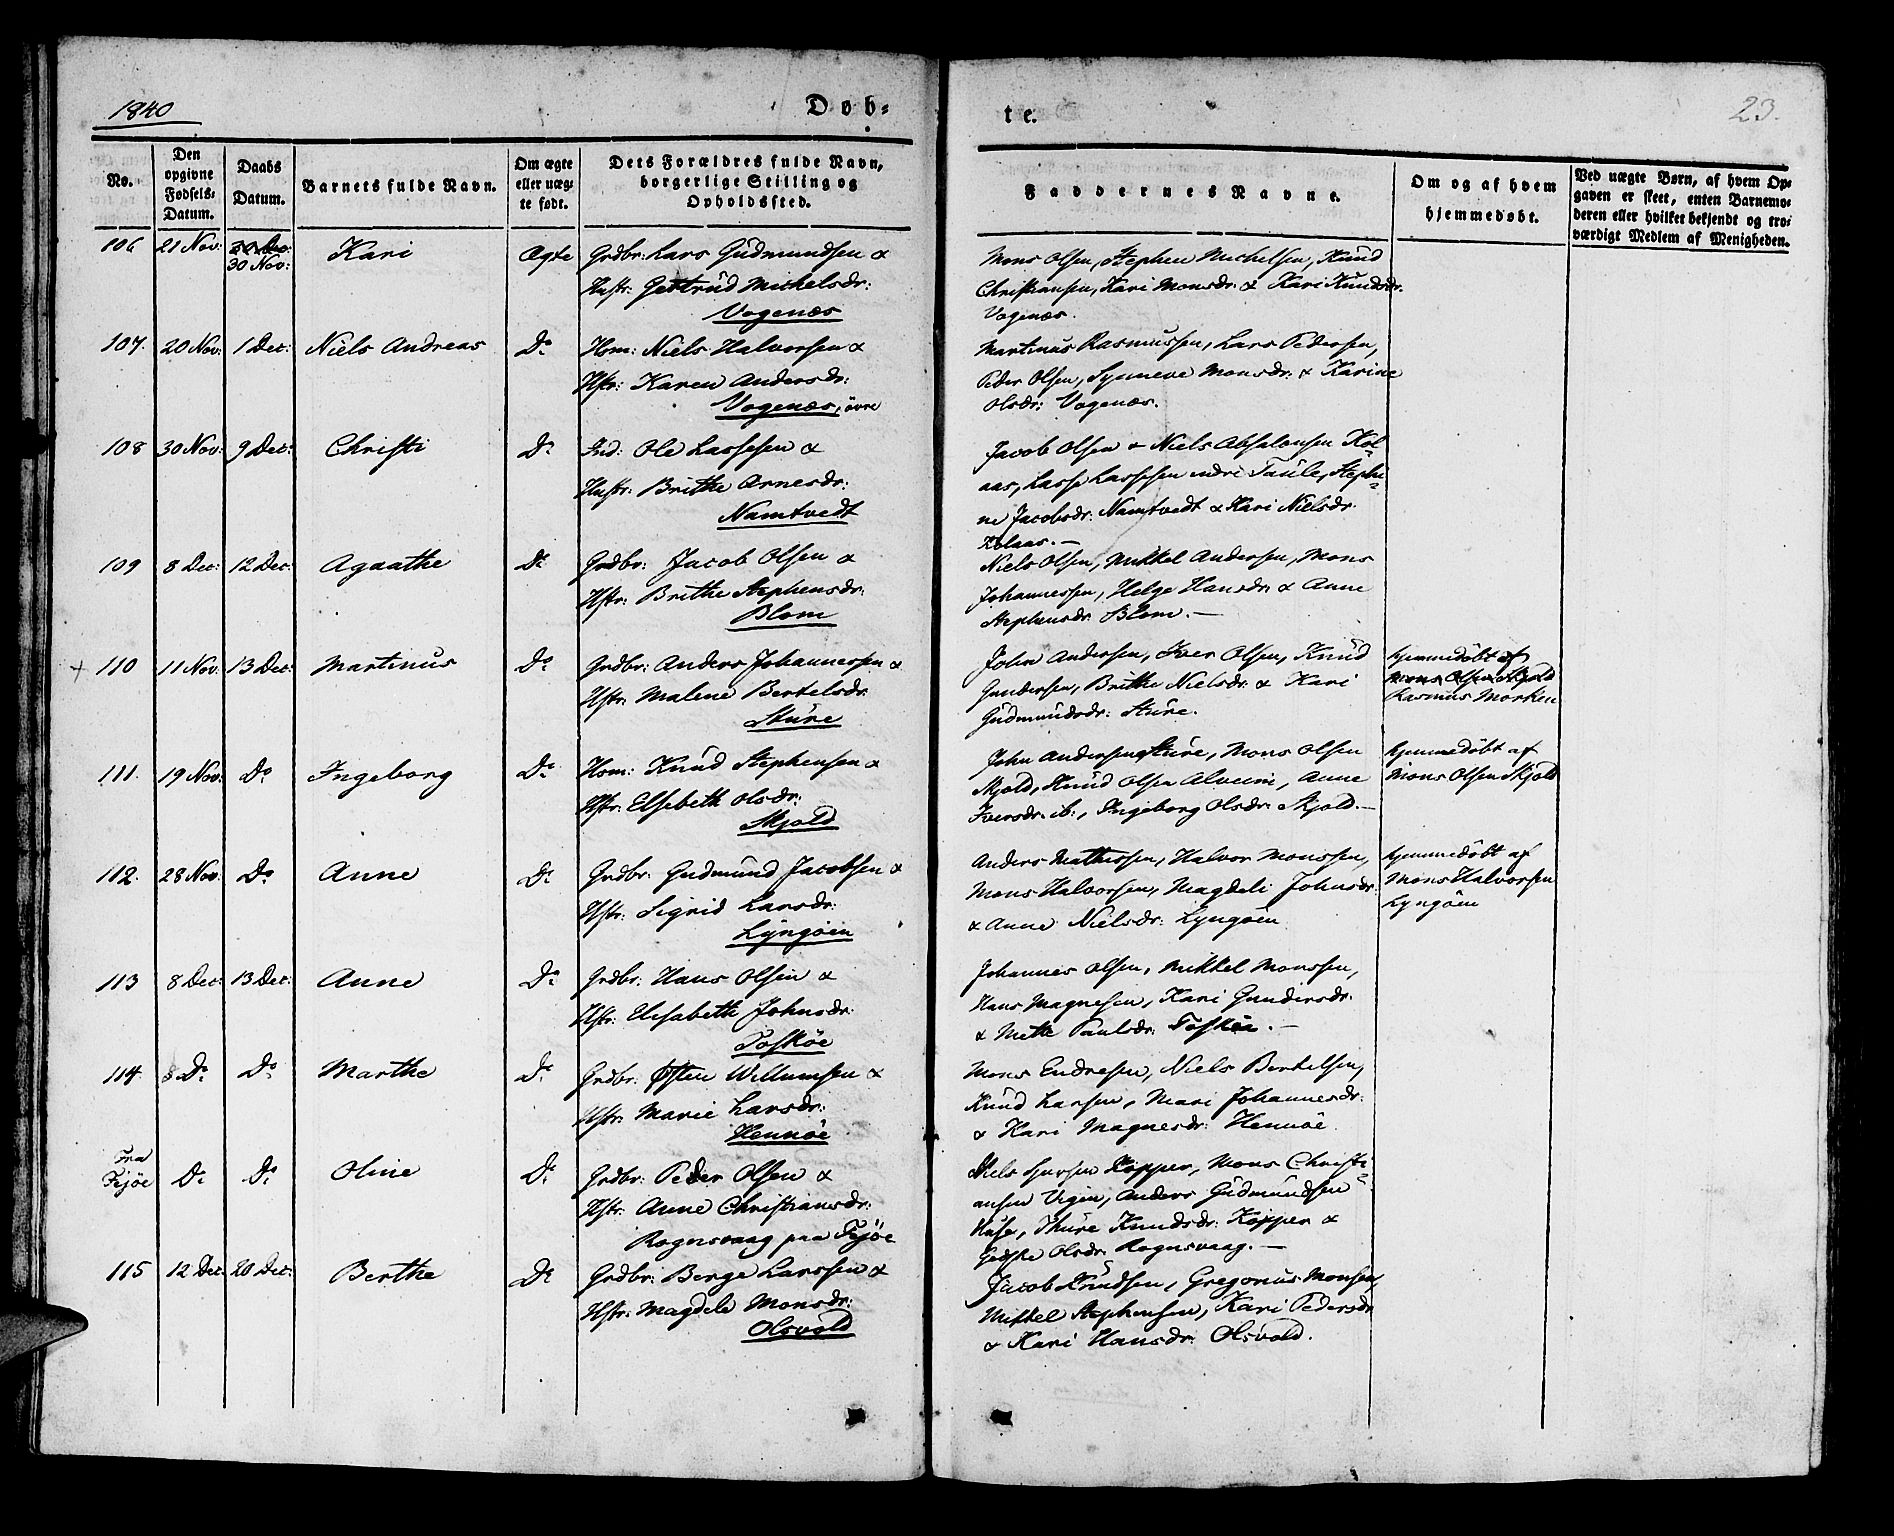 1840
Døb-
te.
23.
No.
Den opgivne Fødsels-Datum.
Daabs Datum.
Barnets fulde Navn.
Om ægte eller uæg-te født.
Dets Forældres fulde Navn, borgerlige Stilling og Opholdssted.
Faddernes Navne.
Om og af hvem hjemmedøbt.
Ved uægte Børn, af hvem Op-gaven er skeet, enten Barnemo-deren eller hvilket bekjendt og tro-værdigt Medlem af Menigheden.
106 21 Nov: 30 Nov: Kari Ægte Grdbr: Lars Gudmundsen &
Hustr: Gertrud Michelsdr:
Vogenæs
Mons Olsen, Stephen Michelsen, Knud
Christiansen, Kari Monsdr: & Kari Knudsdr:
Vogenæs.
107. 20 Nov: 1 Dec: Niels Andreas Do Hsm: Niels Halvorsen &
Hstr: Karen Andersdr:
Vogenæs, øvre
Martinus Rasmussen, Lars Pedersen,
Peder Olsen, Synneve Monsdr: & Karine
Olsdr: Vogenæs.
108 30 Nov: 9 Dec: Christi Do Ind: Ole Lassesen &
Hustr: Brithe Arnesdr:
Namtvedt
Jacob Olsen & Niels Absalonsen Kol-
aas, Lasse Lassesen nedre Taule, Stephi-
ne Jacobsdr: Namtvedt & Kari Nielsdr:
Kolaas. —
109 8 Dec: 12 Dec: Agaathe Do Grdbr: Jacob Olsen &
Hstr: Brithe Stephensdr:
Blom
Niels Olsen, Mikkel Andersen, Mons
Johannessen, Helge Hansdr: & Anne
Stephensdr: Blom. —
+ 110 11 Nov: 13 Dec: Martinus Do Grdbr: Anders Johannessen &
Hstr: Malene Bertelsdr:
Sture
John Andersen, Iver Olsen, Knud
Gundersen, Brithe Nielsdr: & Kari
Gudmundsdr: Sture.
hjemmedøbt af
Mons Olsen Skjold
Rasmus Morken
111. 19 Nov: Do Ingeborg Do Hsm: Knud Stephensen &
Hstr: Elsebeth Olsdr:
Skjold
John Andersen Sture, Mons Olsen
Skjold, Knud Olsen Alveim, Anne
Iversdr: ib:, Ingeborg Olsdr: Skjold. —
hjemmedøbt af
Mons Olsen Skjold
112. 28 Nov: Do Anne Do Grdbr: Gudmund Jacobsen &
Hstr: Sigrid Larsdr:
Lyngøen
Anders Mathissen, Halvor Monssen,
Mons Halvorsen, Magdeli Johnsdr:
& Anne Nielsdr: Lyngøen
hjemmedøbt af
Mons Halvorsen
Lyngøen
113 8 Dec: 13 Dec: Anne Do Grdbr: Hans Olsen &
Hstr: Elisabeth Johnsdr:
Toskøe
Johannes Olsen, Mikkel Monssen,
Hans Magnesen, Kari Gundersdr:
& Mette Paulsdr: Toskøe. —
114 8 Do Do Marthe Do Grdbr: Østen Willumsen &
Hstr: Marie Larsdr:
Hennøe
Mons Endresen, Niels Bertelsen,
Knud Larsen, Mari Johannesdr:
& Kari Magnesdr: Hennøe.
Fra
Fejøe Do Do Oline Do Grdbr: Peder Olsen &
Hstr: Anne Christiansdr:
Rognsvaag paa Fejøe
Niels Kopper, Mons Christi-
ansen Vigen, Anders Gudmundsen
Huse, Thure Knudsdr: Kopper &
Geske Olsdr: Rognsvaag. —
115 12 Dec: 20 Dec: Berthe Do Grdbr: Berge Larssen &
Hstr: Magdele Monsdr:
Olsvold
Jacob Knudsen, Gregorius Monsen,
Mikkel Stephensen, Kari Pedersdr:
& Kari Hansdr: Olsvold.